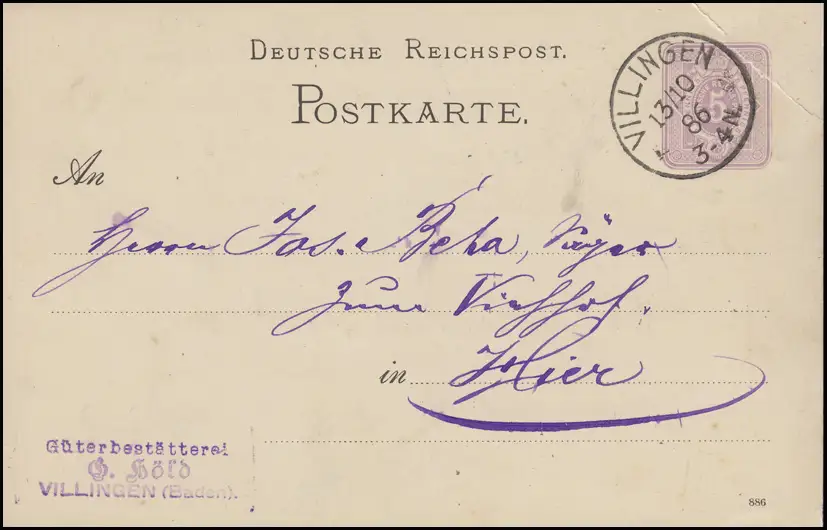 DEUTSCHE REICHSPOST.
POSTKARTE.
VILLINGEN
13/10
86
3-4N.
5
An
Herrn Jos. Beha, Säger
zum Viehhof.
in Hier
Güterbestätterei
G. Höld
VILLINGEN (Baden).
886